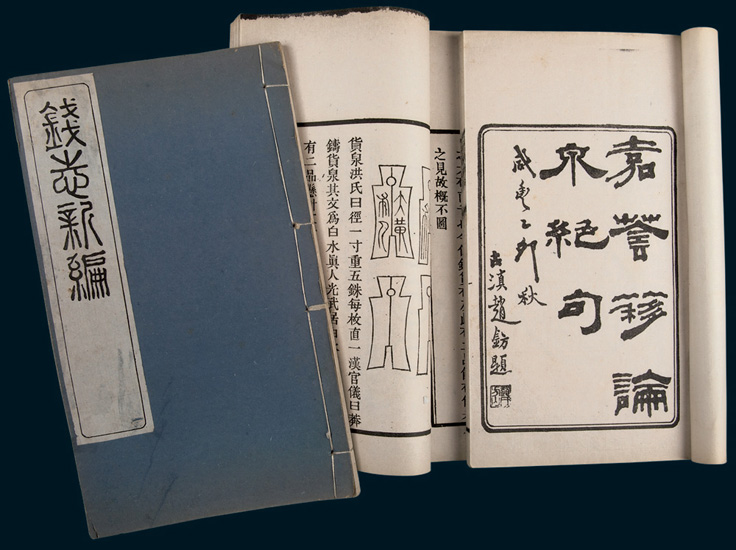 錢志新編
嘉蔭簃論
泉絕句
咸豐乙卯秋
古滇趙鈁題
之見故概不圖
大黃
布刀
貨泉洪氏曰徑一寸重五銖每枚直一漢官儀曰莽
鑄貨泉其文爲白水眞人光武居白水
有二品